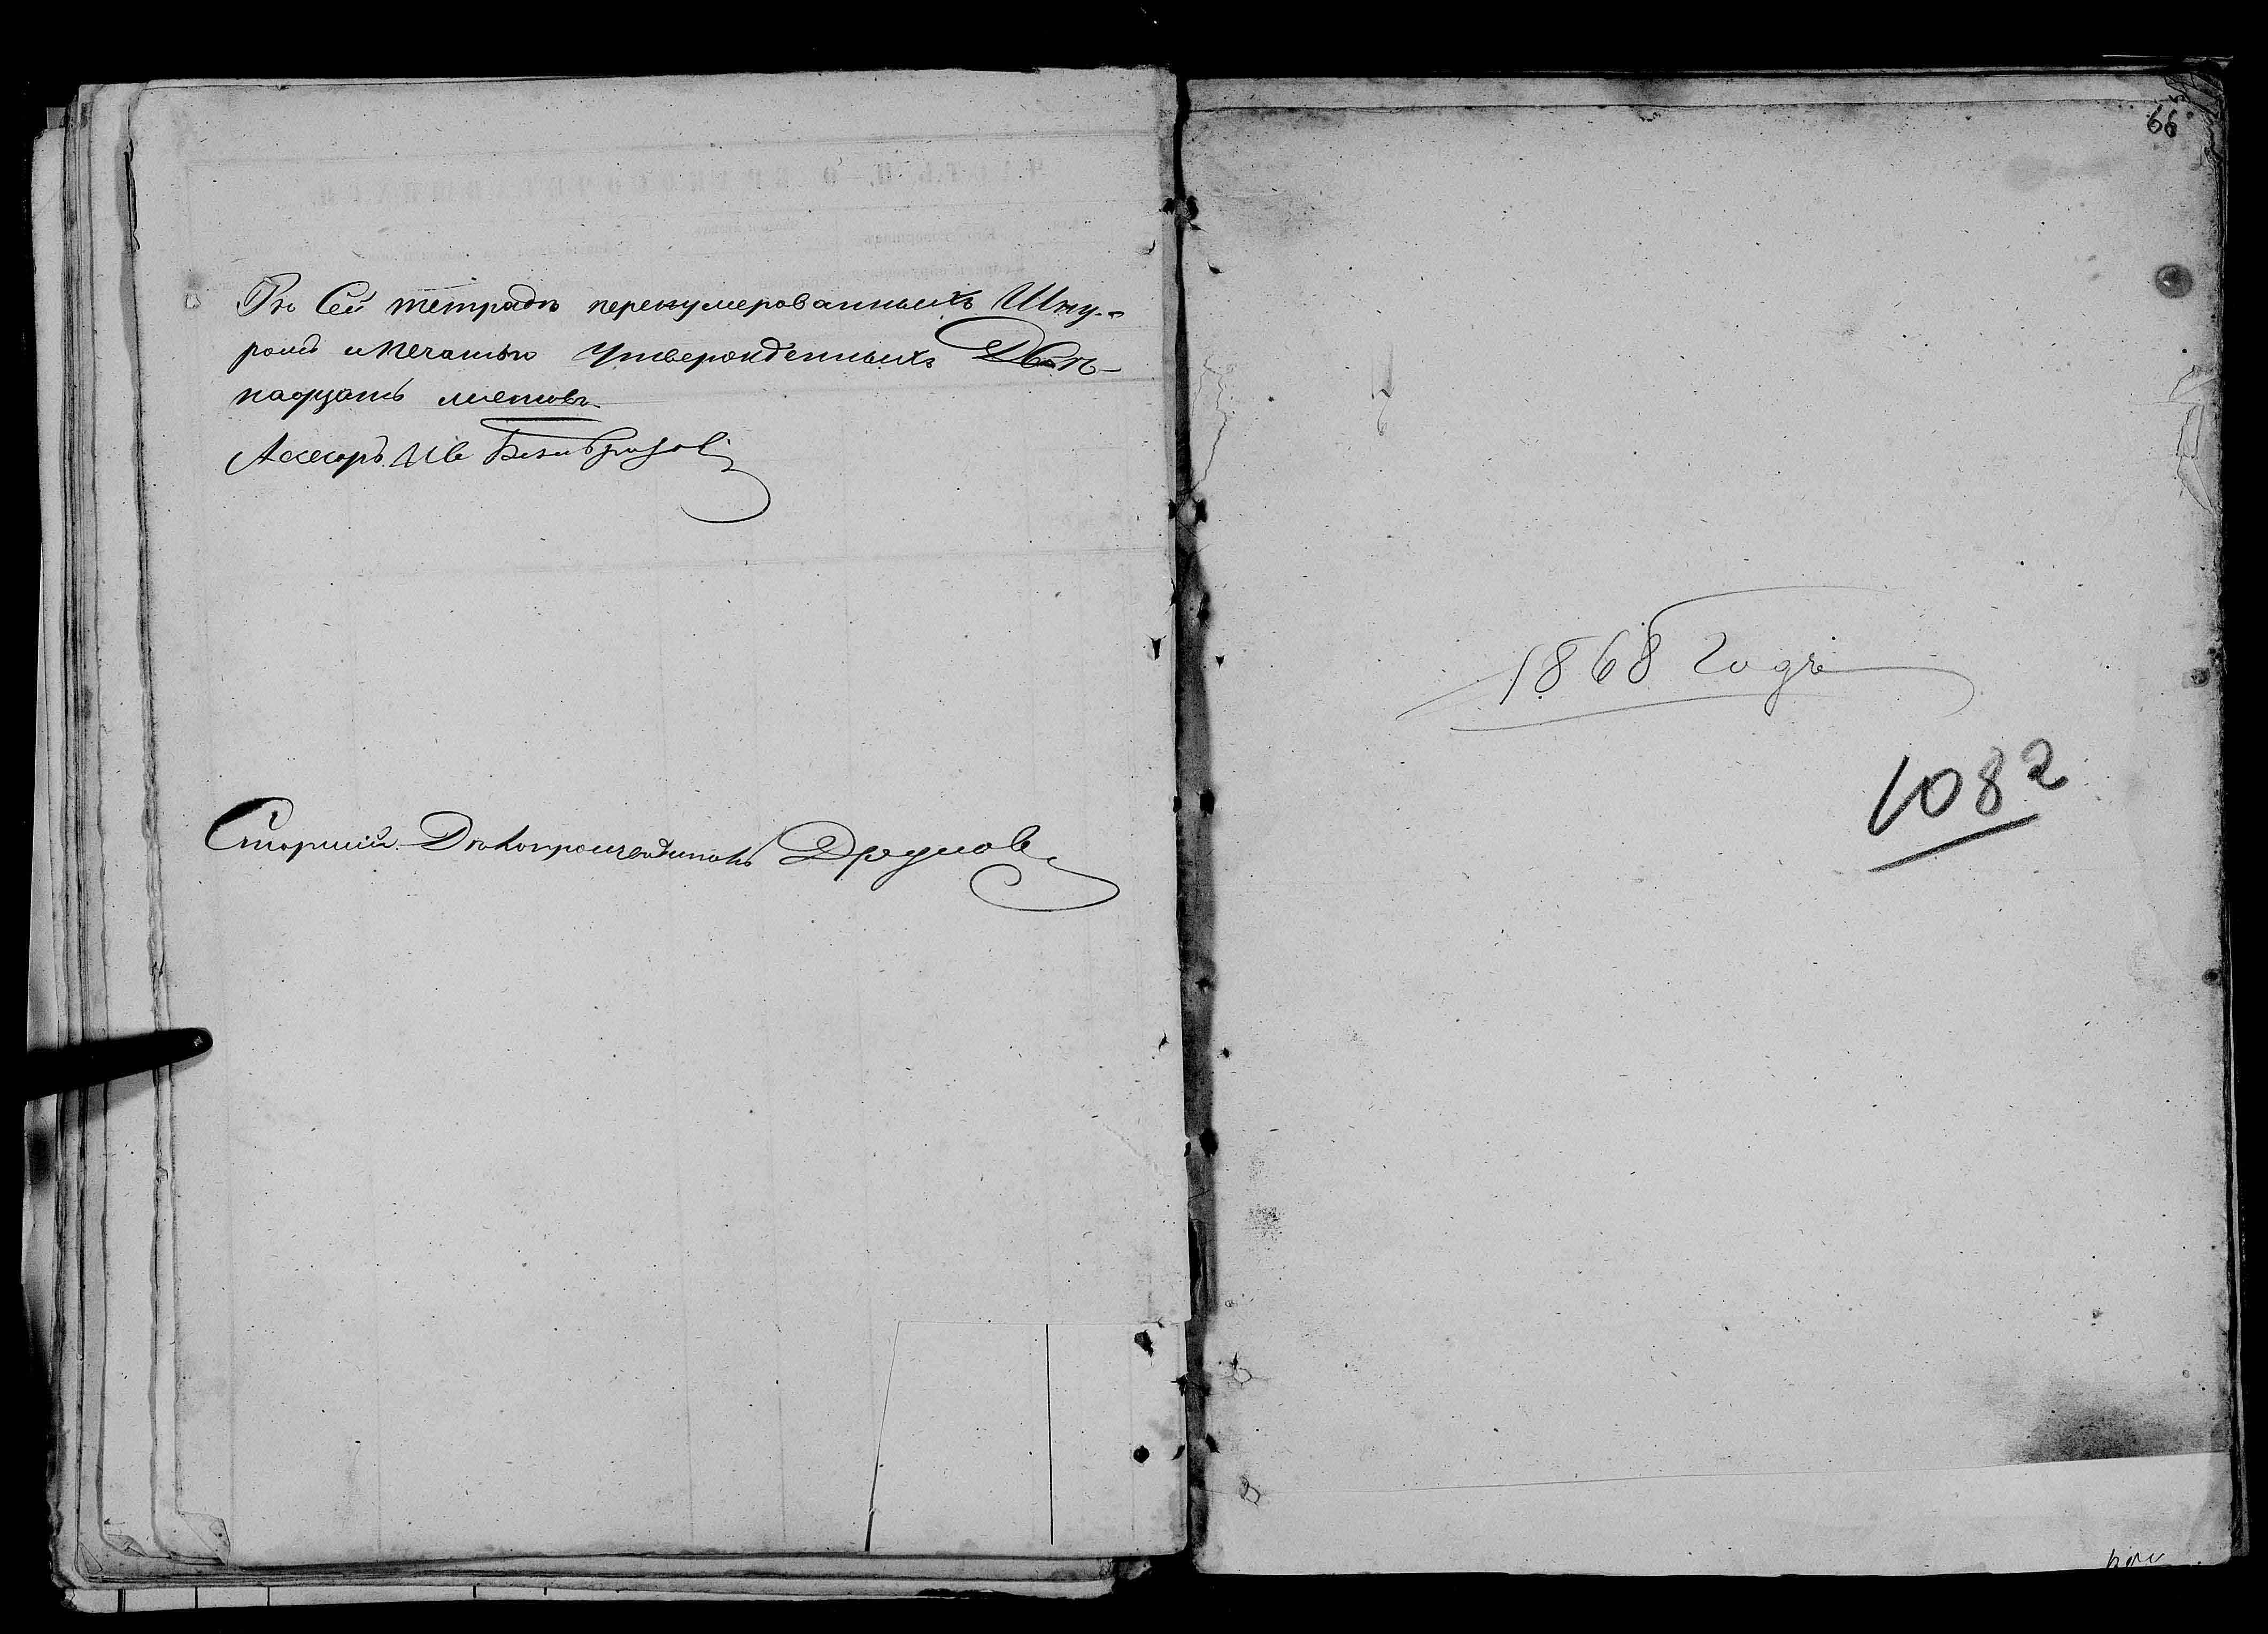 Въ Сей тетради перенумерованныхъ Шну-
ромъ и печатью Утвержденныхъ Двѣ-
надцать листовъ.
Ассесоръ Ив
Старшій Дѣлопроизводитель
66
1868 Годъ
1082